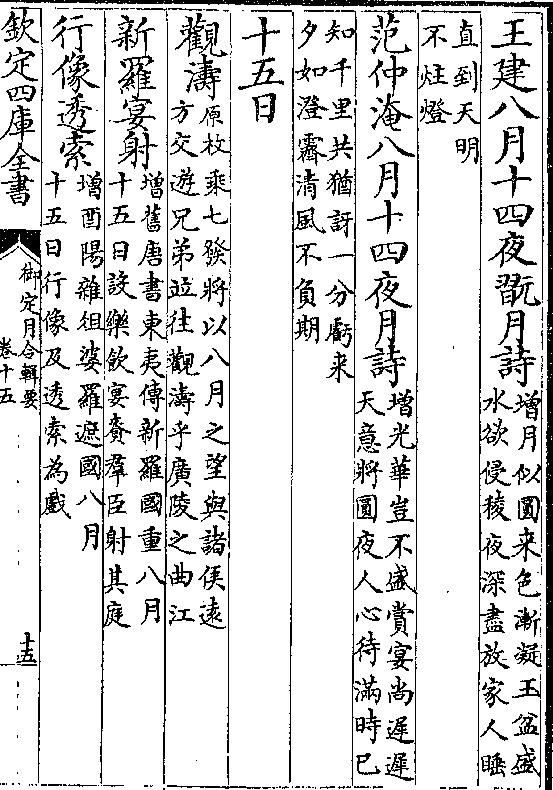 王建八月十四夜翫月詩增月似圓来色漸凝玉盆盛
水欲侵稜夜深盡放家人睡
直到天明
不炷燈
范仲淹八月十四夜月詩增光華豈不盛賞宴尚遲遲
天意將圓夜人心待滿時已
知千里共猶訝一分虧来
夕如澄霽清風不負期
十五日
觀濤原枚乘七發將以八月之望與諸侯遠
方交遊兄弟並往觀濤乎廣陵之曲江
新羅宴射增舊唐書東夷傳新羅國重八月
十五日設樂飲宴賚羣臣射其庭
行像透索增酉陽雜俎婆羅遮國八月
十五日行像及透索為戲
欽定四庫全書
御定月令輯要
卷十五
十五